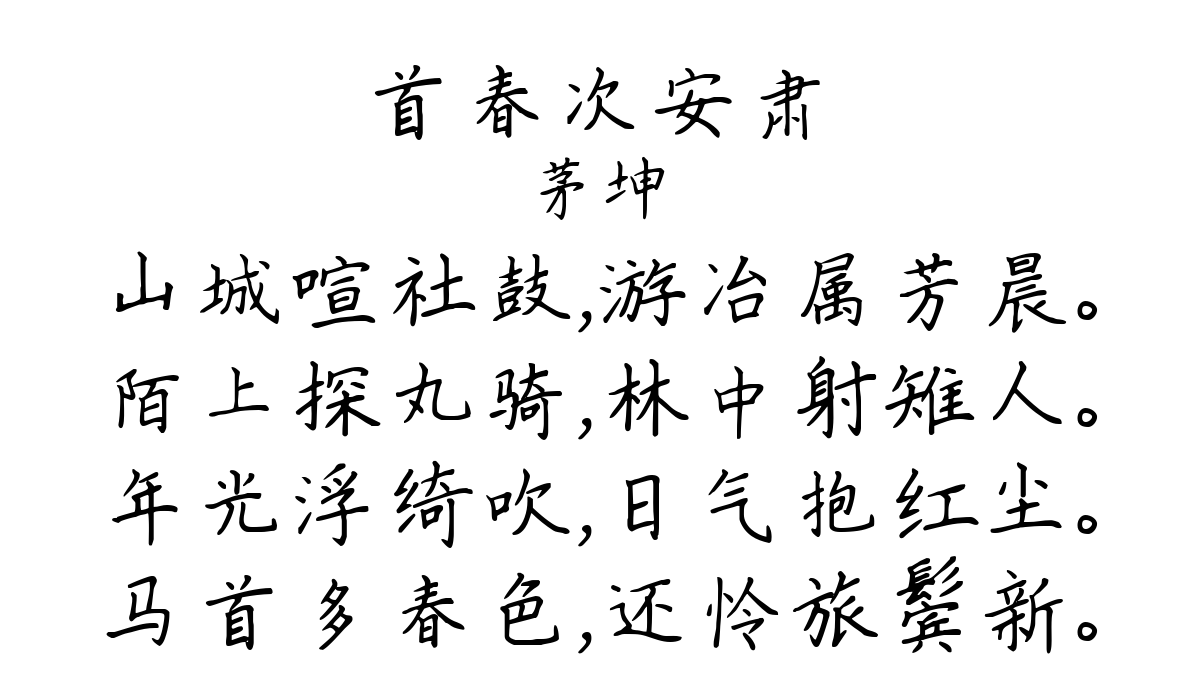 首春次安肃
茅坤
山城喧社鼓,游冶属芳晨。
陌上探丸骑,林中射雉人。
年光浮绮吹,日气抱红尘。
马首多春色,还怜旅鬓新。